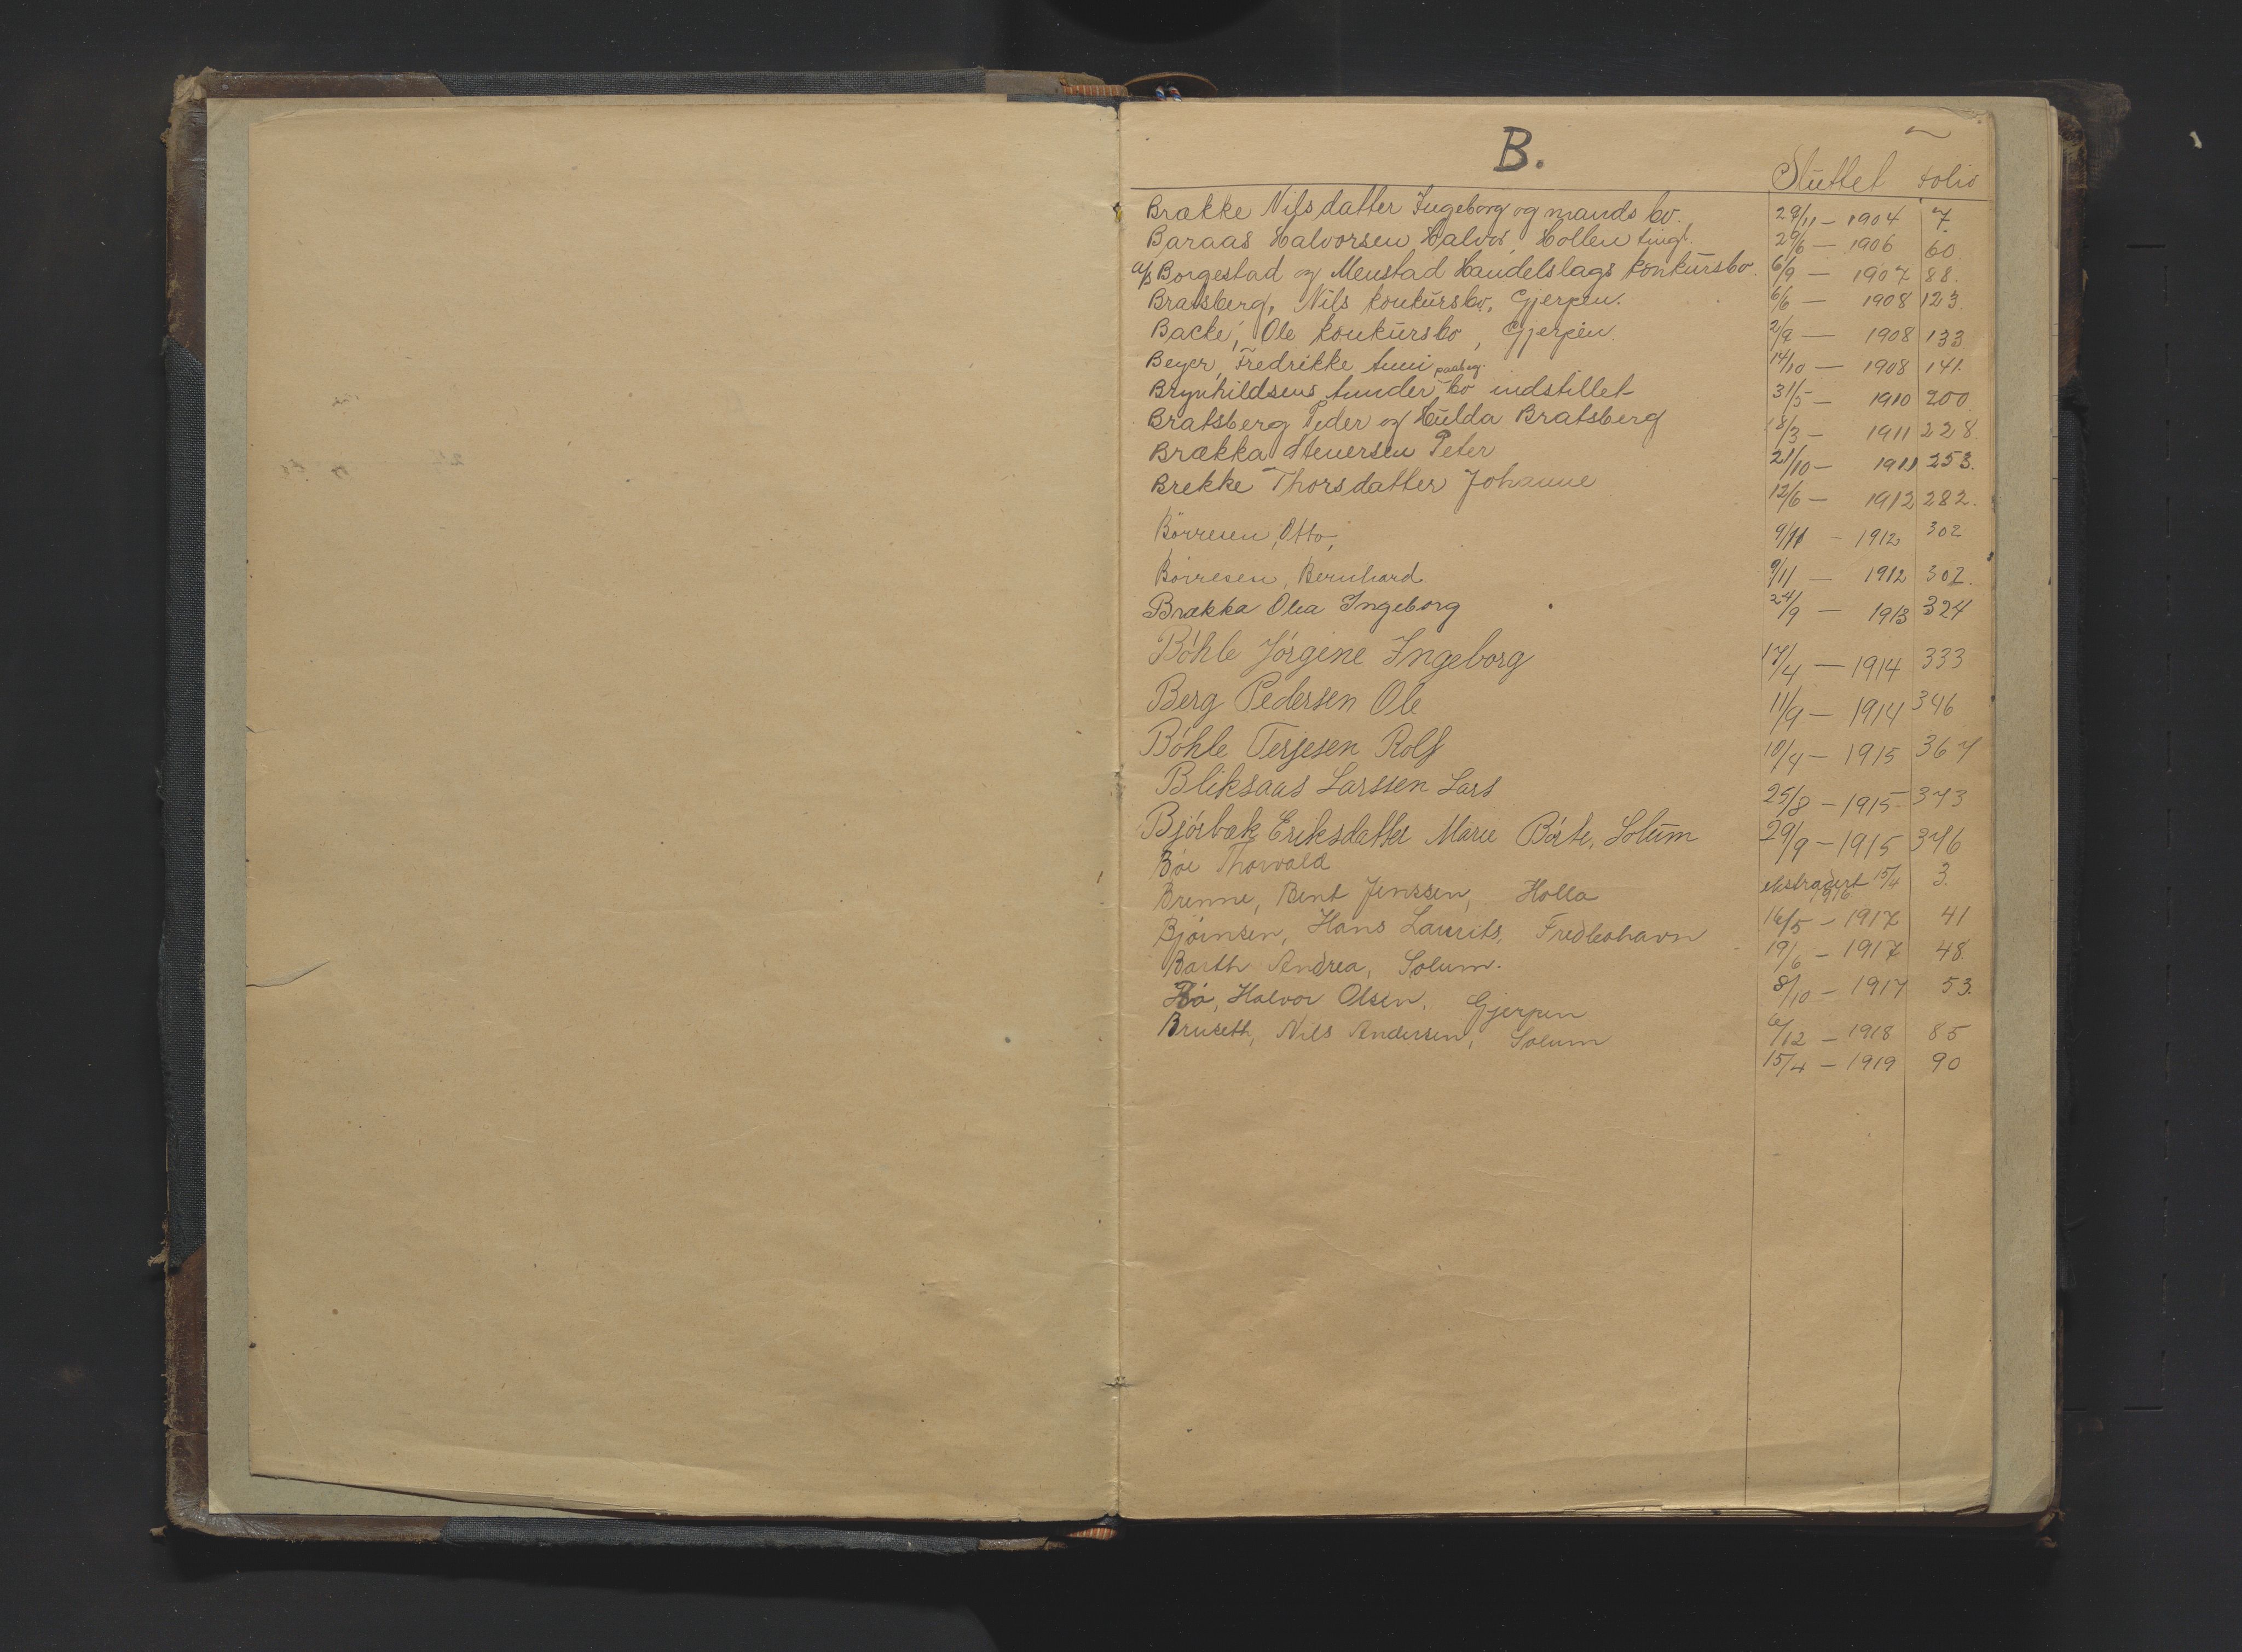 B.
Sluttet folio
Brække Nilsdatter Ingeborg og mands bo. 29/11 – 1904 7.
Baraas Halvorsen Halvor, Hollen tingl. 29/6 – 1906 60.
a/s Borgestad og Menstad Handelslags konkursbo. 6/9 – 1907 88.
Bratsberg, Nils konkursbo, Gjerpen. 6/6 – 1908 123.
Backe, Ole konkursbo, Gjerpen. 2/9 – 1908 133
Beyer, Fredrikke 14/10 – 1908 141.
Brynhildsens bo indstillet 31/5 – 1910 200
Bratsberg Peder og Hulda Bratsberg 18/3 – 1911 228.
Brækka Stenersen Peter 21/10 – 1911 253.
Brekke Thorsdatter Johanne 12/6 – 1912 282.
Börresen, Otto, 9/11 – 1912 302
Börresen, Bernhard. 9/11 – 1912 302.
Brækka Olea Ingeborg 24/9 – 1913 324
Bóhle Jórgine Ingeborg 17/4 – 1914 333
Berg Pedersen Ole 11/9 – 1914 346
Bóhle Terjesen Rolf 10/4 – 1915 367
Bliksaas Larssen Lars 25/8 – 1915 373
Bjórbæk Eriksdatter Marie Bórte, Solum 29/9 – 1915 376
Bóe Thorvald ekstradert 15/4 1916 3.
Brenne, Bent Jenssen, Holla 16/5 – 1917 41
Bjórnsen, Hans Laurits, 19/6 – 1917 48.
Barth Andrea, Solum. 8/10 – 1917 53.
Bó, Halvor Olsen, Gjerpen 6/12 – 1918 85
Bruseth, Nils Andersen, Solum 15/4 – 1919 90